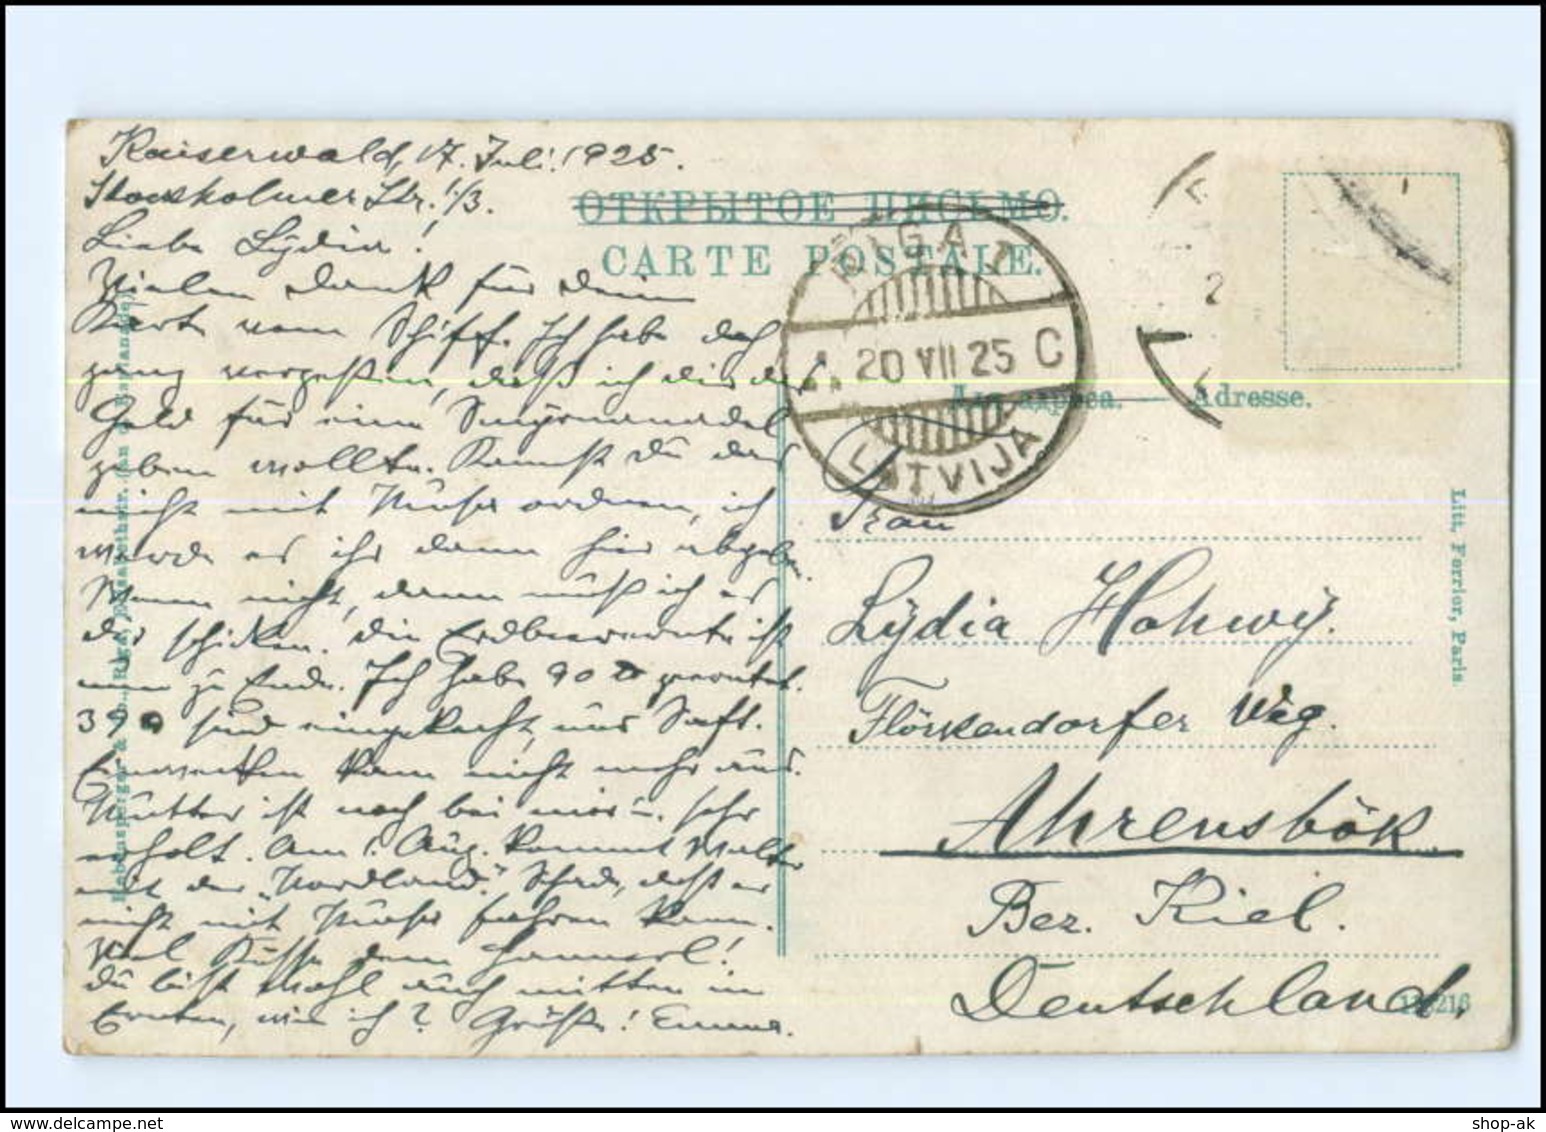 Kaiserwald, 17. Juli 1925.
Stockholmer Str. 1/3.
Liebe Lydia!
Vielen Dank für Deine
Karte vom Schiff. Ich habe doch
ganz vergessen, daß ich dir das
Geld für eine
geben wollte. Kannst du das
nicht mit ordnen, ich
würde es ihr dann hier abgeben.
Wenn nicht, dann muß ich es
dir schicken. Die Erdbeerernte ist
nun zu Ende. Ich habe 90 ℔ geerntet.
39 sind eingekocht, aus Saft.
kann nicht mehr aus.
Mutter ist noch bei mir u. sehr
erholt. Am 1. Aug. kommt Walter
mit der „Nordland". Schade, daß er
nicht mit fahren kann.
Viel Küsse dem Hannerl!
Du bist wohl auch mitten in
Ernten, wie ich? Grüße! Emma.
ОТКРЫТОЕ ПИСЬМО.
CARTE POSTALE.
RIGA 1
20 VII 25 C
LATVIJA
Для адреса. — Adresse.
Frau
Lydia Hohwy.
Flörkendorfer Weg.
Ahrensbök
Bez. Kiel.
Deutschland.
Litt, Forrior, Paris.
shop-ak